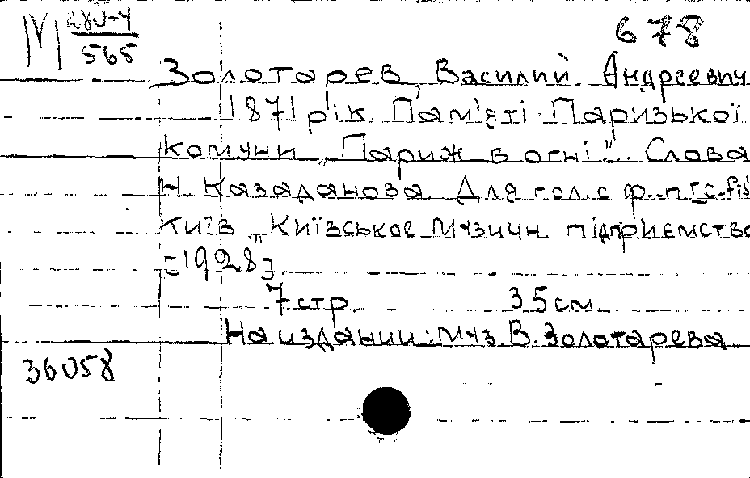 М 280-4
565
678
Золотарев, Василий Андреевич
1871 рік. Пам'яті Паризької
комуни „Париж в огні". Слова
Н. Казаданова. Для гол. с ф.-п. [c-fis
Київ „Київськое Музичн. підприємство
[1928]
7 стр. 35 см
На издании: Муз. В. Золотарева
36058